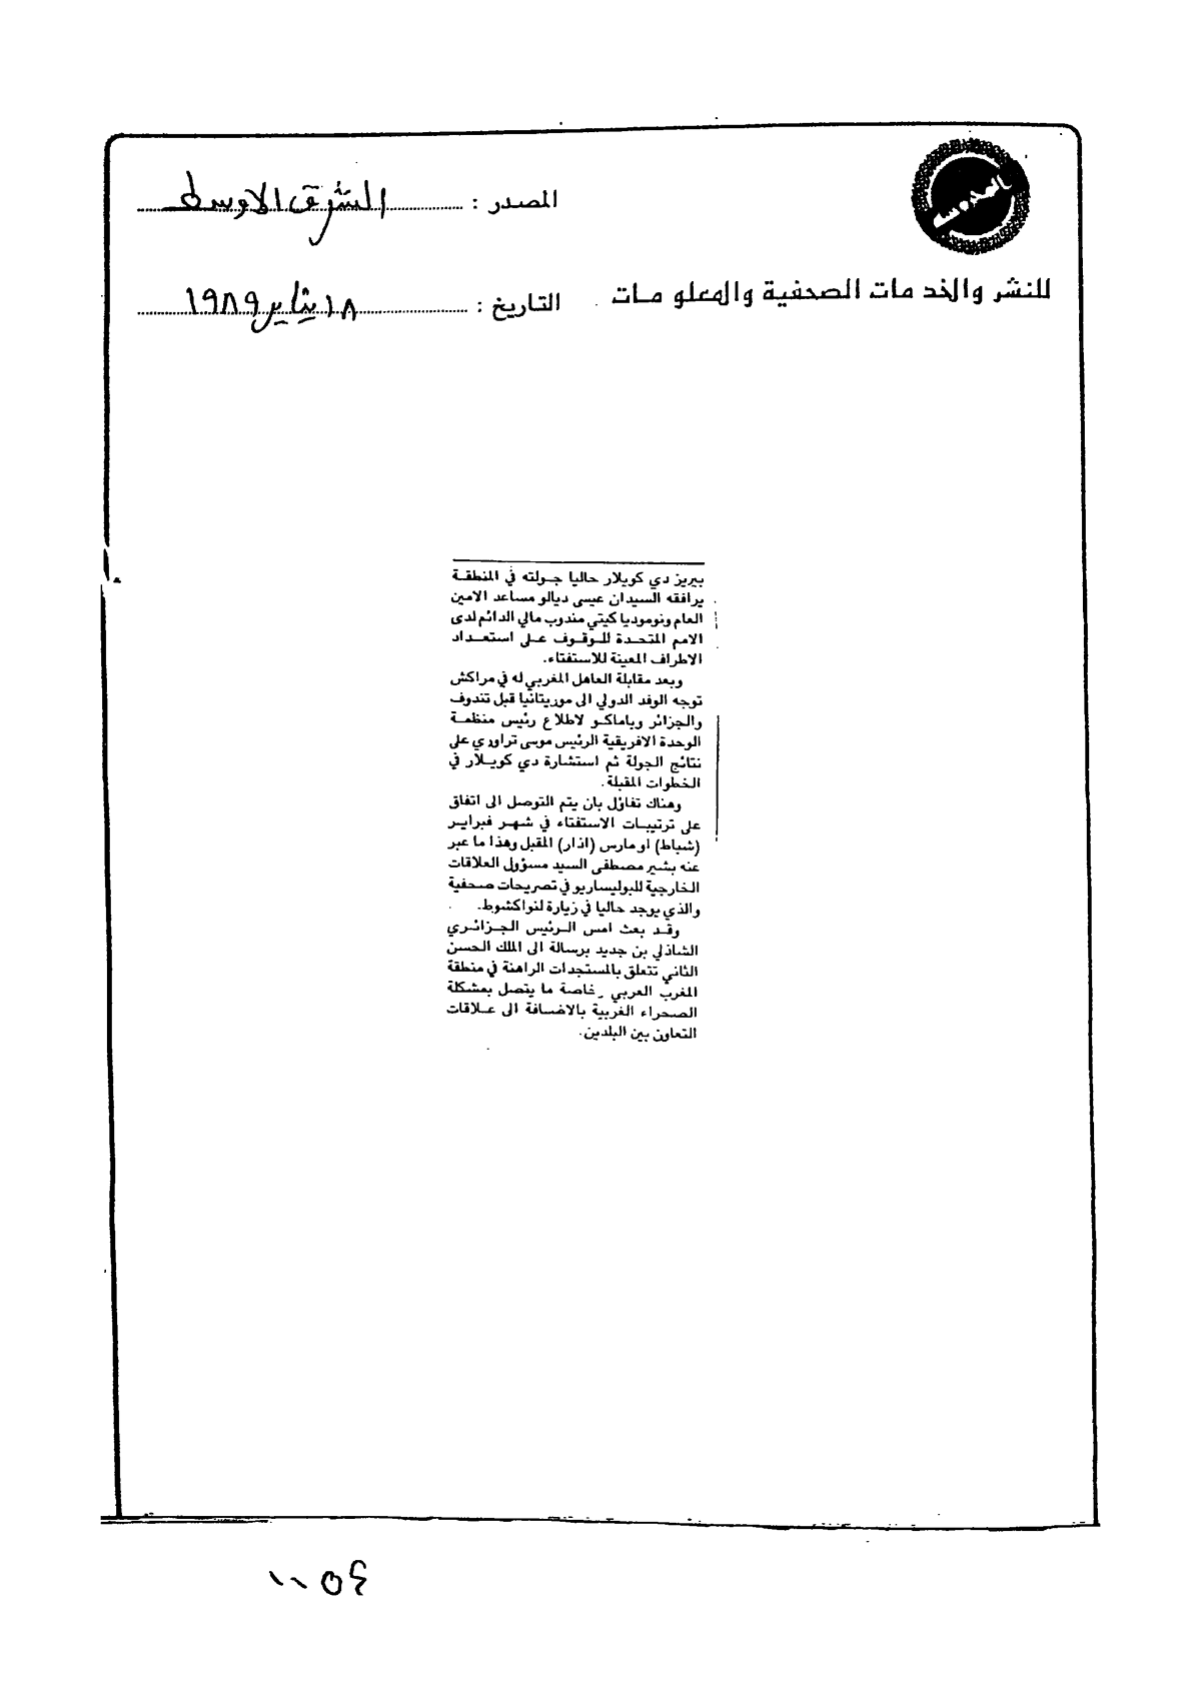 المصدر : الشرق الاوسط
للنشر والخدمات الصحفية والمعلومات
التاريخ : ١٨ يناير ١٩٨٩
بيريز دي كويلار حاليا جولته في المنطقة
يرافقه السيدان عيسى ديالو مساعد الامين
العام ونوموديا كيتي مندوب مالي الدائم لدى
الامم المتحدة للوقوف على استعداد
الاطراف المعينة للاستفتاء.
وبعد مقابلة العاهل المغربي له في مراكش
توجه الوفد الدولي الى موريتانيا قبل تندوف
والجزائر وباماكو لاطلاع رئيس منظمة
الوحدة الافريقية الرئيس موسى تراوري على
نتائج الجولة ثم استشارة دي كويلار في
الخطوات المقبلة.
وهناك تفاؤل بان يتم التوصل الى اتفاق
على ترتيبات الاستفتاء في شهر فبراير
(شباط) او مارس (اذار) المقبل وهذا ما عبر
عنه بشير مصطفى السيد مسؤول العلاقات
الخارجية للبوليساريو في تصريحات صحفية
والذي يوجد حاليا في زيارة لنواكشوط.
وقد بعث امس الرئيس الجزائري
الشاذلي بن جديد برسالة الى الملك الحسن
الثاني تتعلق بالمستجدات الراهنة في منطقة
المغرب العربي خاصة ما يتصل بمشكلة
الصحراء الغربية بالاضافة الى علاقات
التعاون بين البلدين.